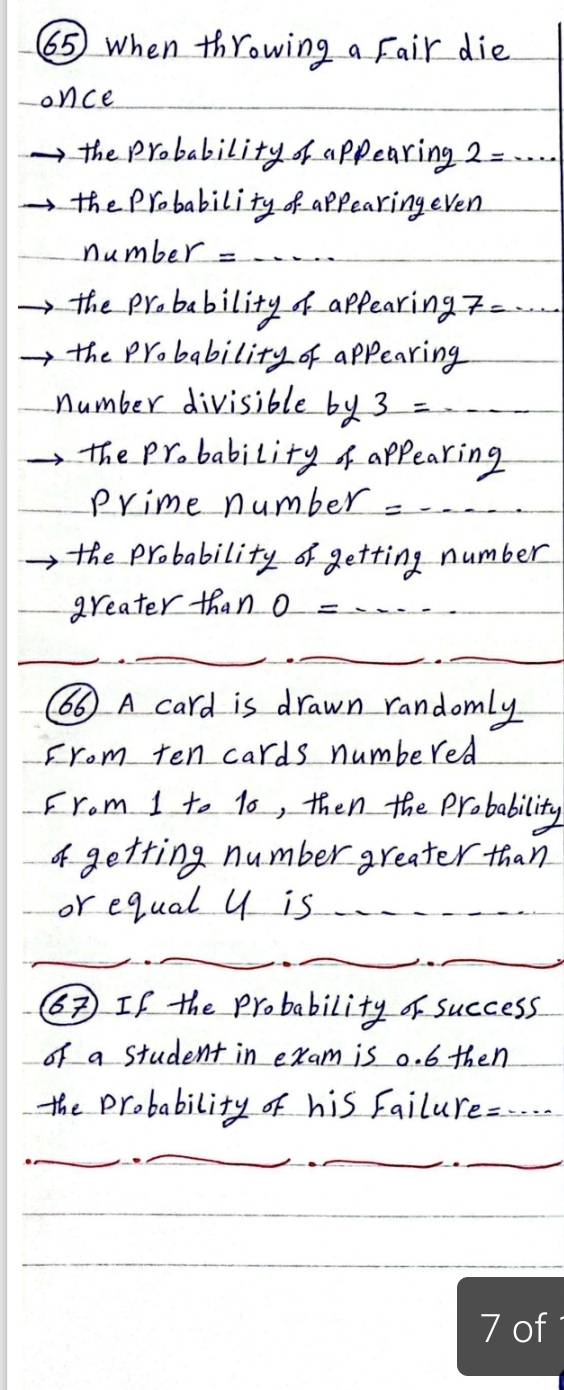 65 When throwing a Fair die
once
→ the probability of appearing 2 = ....
→ the Probability of appearing even
number = .....
→ the probability of appearing 7 = ....
→ the Probability of appearing
number divisible by 3 = .----
→ the probability of appearing
Prime number = -----.
→ the probability of getting number
greater than 0 = -----
66 A card is drawn randomly
From ten cards numbered
From 1 to 10, then the Probability
of getting number greater than
or equal 4 is ---------
67 If the probability of success
of a student in exam is 0.6 then
the probability of his Failure = ....
7 of 1